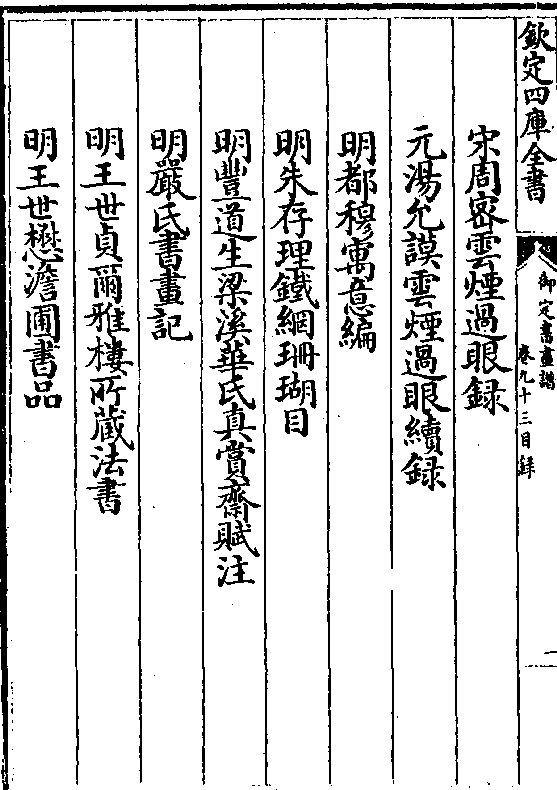 欽定四庫全書
御定書畫譜
卷九十三目録
一
宋周密雲煙過眼録
元湯允謨雲煙過眼續録
明都穆寓意編
明朱存理鐵網珊瑚目
明豐道生梁溪華氏真賞齋賦注
明嚴氏書畫記
明王世貞爾雅樓所蔵法書
明王世懋澹圃書品